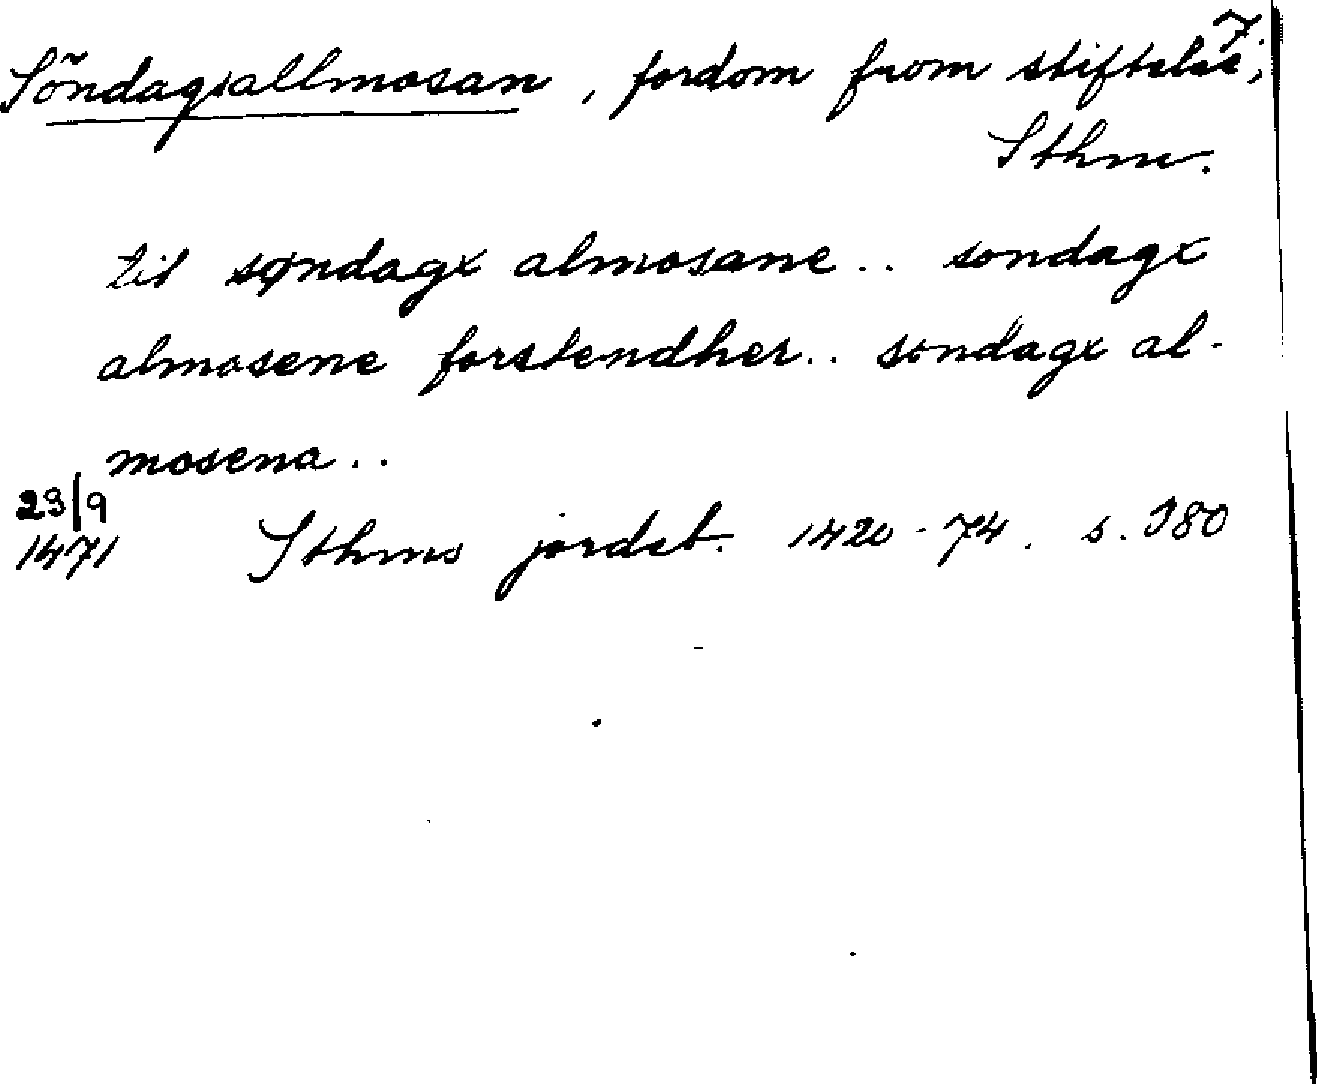 7
Söndagsallmosan, fordom from stiftelse;
Sthm.
til søndagx almosane .. sondagx
almosene forstendher .. sondagx al-
mosena ..
23/9
1471 Sthms jordeb. 1420-74. s. 380